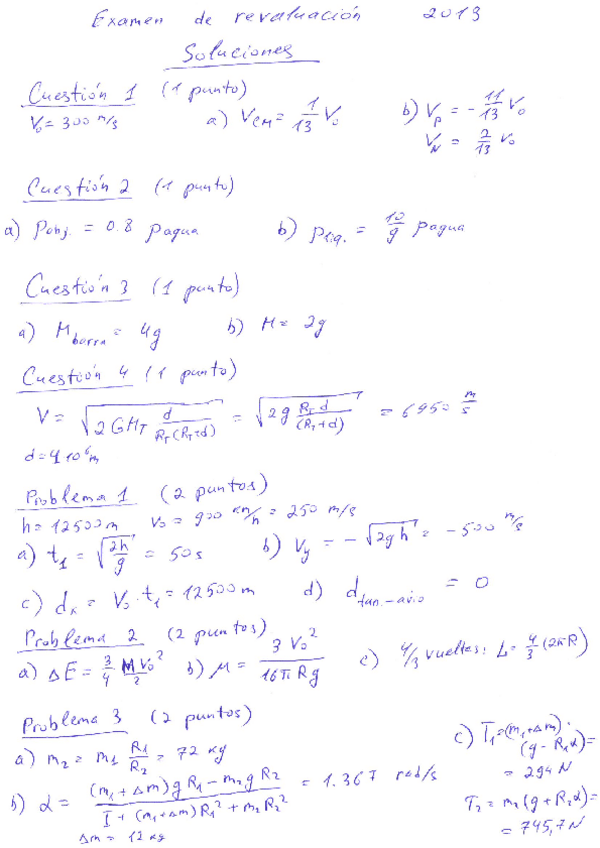 Examen de revaluación 2013
Soluciones
Cuestión 1 (1 punto)
V₀ = 300 m/s a) V_CM = 1/13 V₀ b) V_P = - 11/13 V₀
V_N = 2/13 V₀
Cuestión 2 (1 punto)
a) ρ_obj. = 0.8 ρ_agua b) ρ_liq. = 10/9 ρ_agua
Cuestión 3 (1 punto)
a) M_barra = 4g b) M = 2g
Cuestión 4 (1 punto)
V = √(2GM_T d/(R_T(R_T+d))) = √(2g R_T d/(R_T+d)) = 6950 m/s
d = 4 10⁶ m
Problema 1 (2 puntos)
h = 12500 m V₀ = 900 km/h = 250 m/s
a) t₁ = √(2h/g) = 50 s b) V_y = - √(2gh) = - 500 m/s
c) d_x = V₀·t₁ = 12500 m d) d_tan.-avio = 0
Problema 2 (2 puntos)
a) ΔE = 3/4 MV₀²/2 b) μ = 3V₀²/(16πRg) c) 4/3 vueltas: L = 4/3 (2πR)
Problema 3 (2 puntos)
a) m₂ = m₁ R₁/R₂ = 72 kg
b) α = ((m₁+Δm)gR₁ - m₂gR₂)/(I + (m₁+Δm)R₁² + m₂R₂²) = 1.367 rad/s
Δm = 12 kg
c) T₁ = (m₁+Δm)·
(g - R₁α) =
= 294 N
T₂ = m₂(g + R₂α) =
= 745,7 N